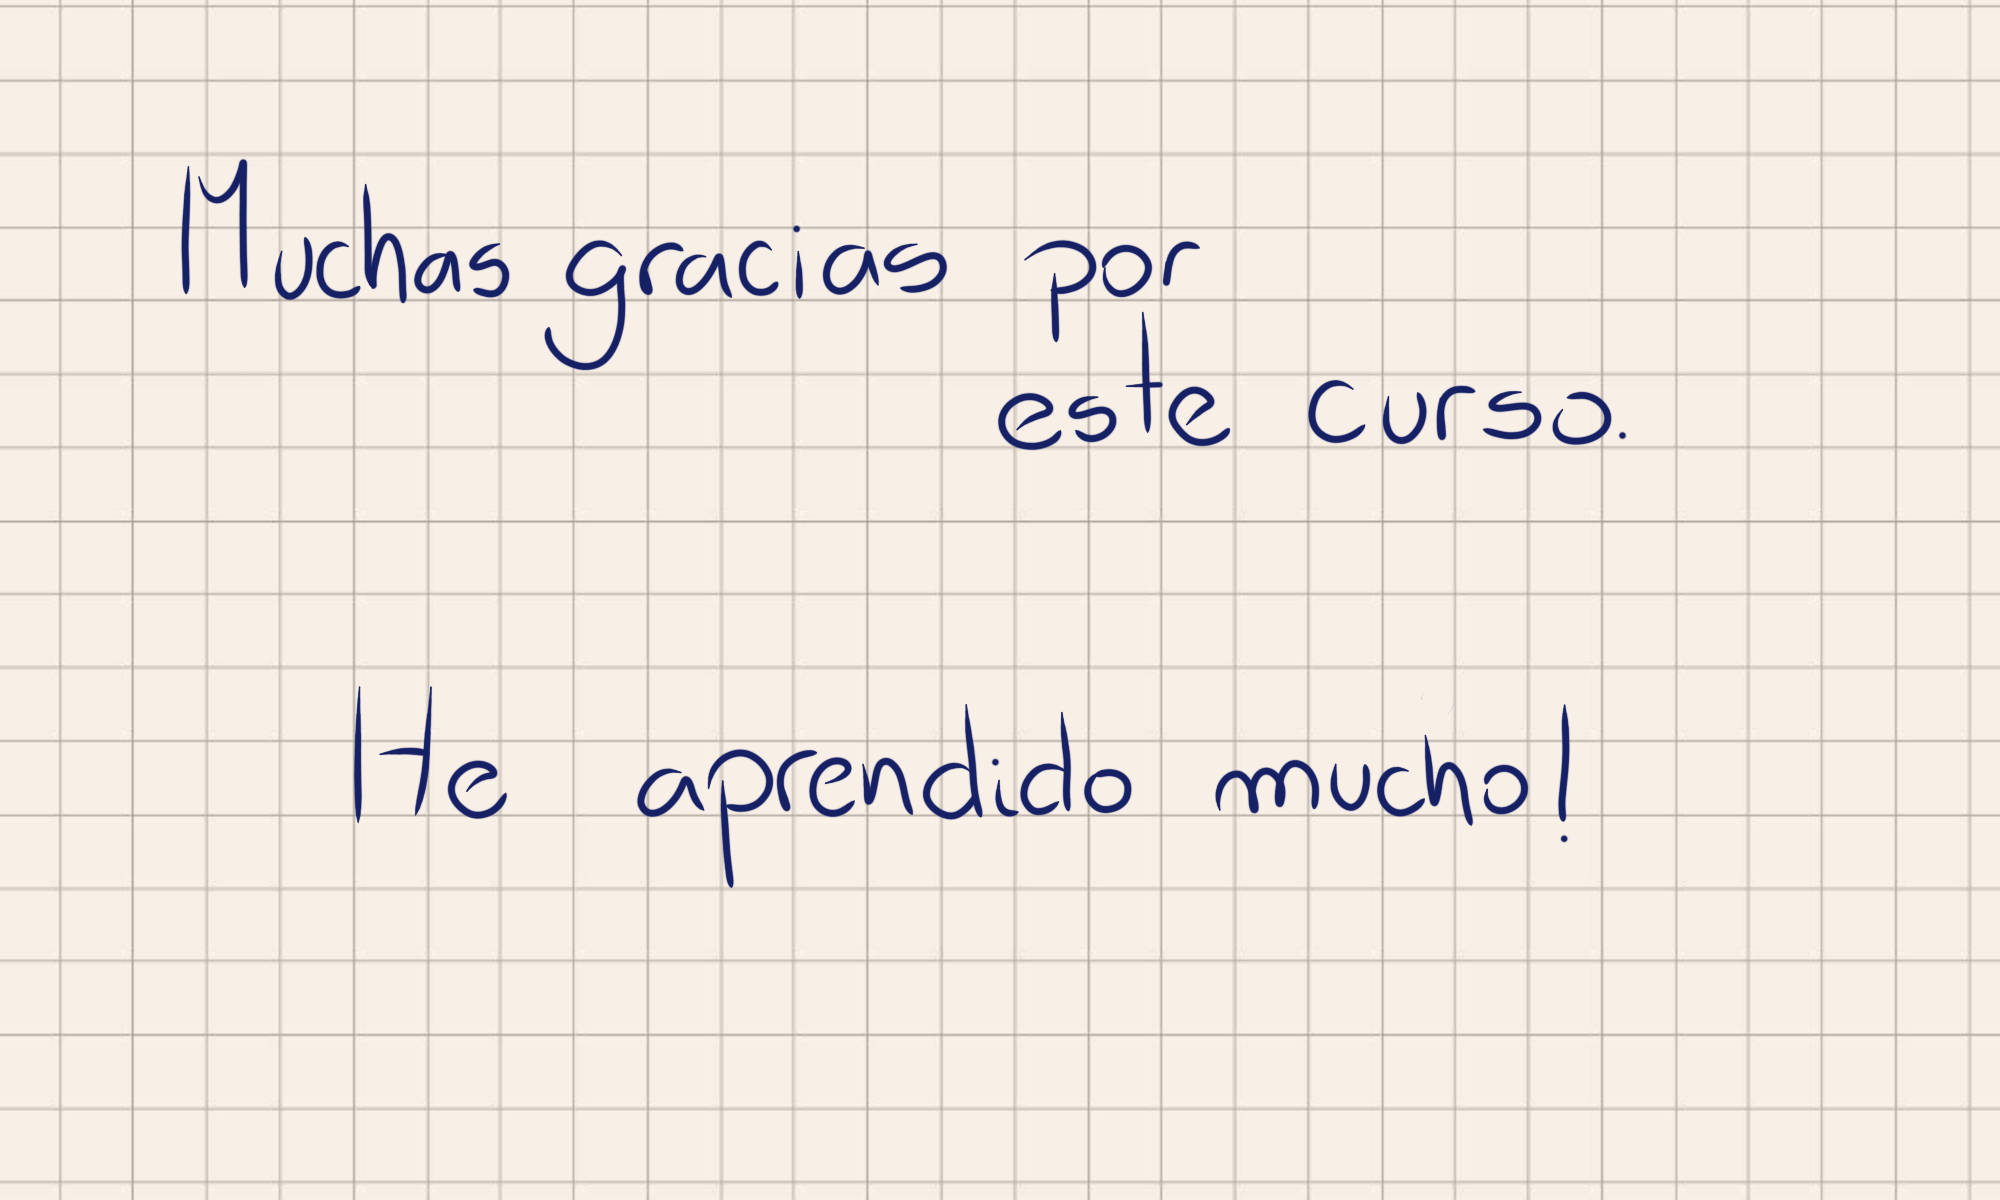 Muchas gracias por
este curso.
He aprendido mucho!